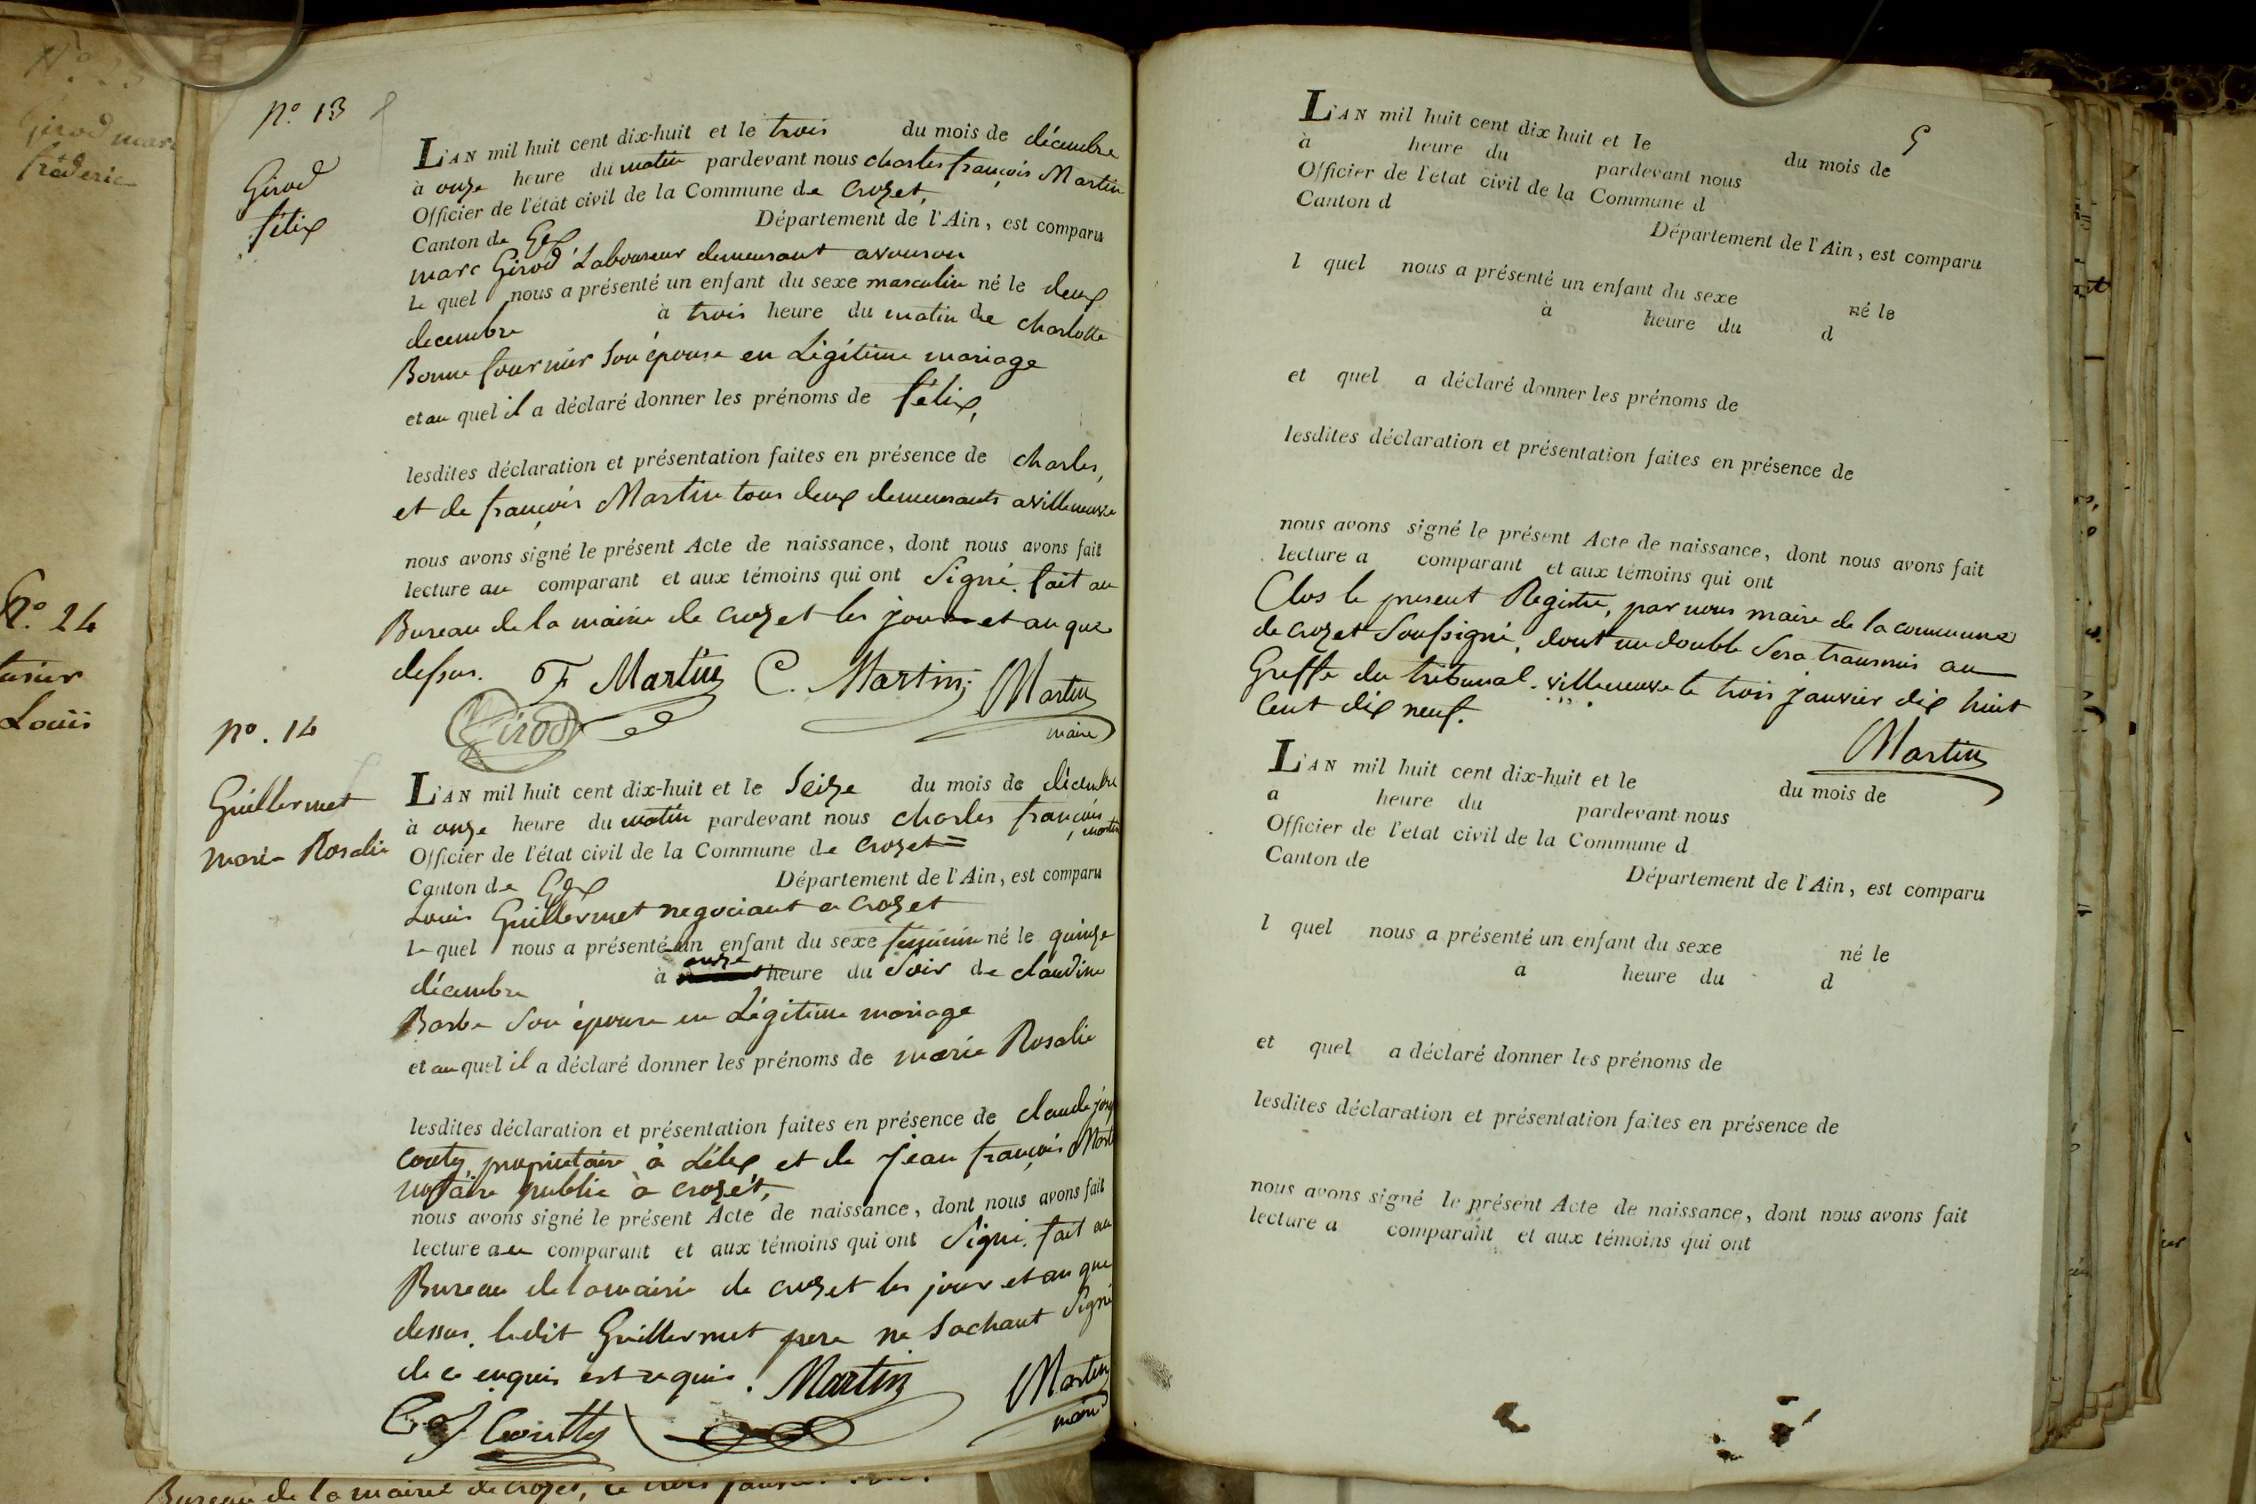 N.° 13
Girod
félix
L'AN mil huit cent dix-huit et le trois du mois de décembre
à onze heure du matin pardevant nous charles françois Martin
Officier de l'état civil de la Commune de Crozet,
Canton de Gex Département de l'Ain, est comparu
marc Girod Laboureur demeurant avouson
le quel nous a présenté un enfant du sexe masculin né le deux
decembre à trois heure du matin de charlotte
Bonne fournier son épouse en Légitime mariage
et au quel il a déclaré donner les prénoms de félix,
lesdites déclaration et présentation faites en présence de charles,
et de françois Martin tous deux demeurants avilleneuve
nous avons signé le présent Acte de naissance, dont nous avons fait
lecture au comparant et aux témoins qui ont Signé. fait au
Bureau de la mairie de crozet les jour et an que
dessus. F Martin C. Martin Martin
Girod maire
N.° 14
Guillermet
marie Rosalie
L'AN mil huit cent dix-huit et le Seize du mois de décembre
à onze heure du matin pardevant nous charles françois martin
Officier de l'état civil de la Commune de Crozet
Canton de Gex Département de l'Ain, est comparu
Louis Guillermet negociant a crozet
le quel nous a présenté un enfant du sexe feminin né le quinze
décembre à onze heure du Soir de claudine
Barbe Son épouse en Légitime mariage
et au quel il a déclaré donner les prénoms de marie Rosalie
lesdites déclaration et présentation faites en présence de claude
Couty, propriétaire à Lélex et de jean françois
notaire public à crozet,
nous avons signé le présent Acte de naissance, dont nous avons fait
lecture au comparant et aux témoins qui ont Signé. fait au
Bureau de la mairie de crozet les jour et an que
dessus. ledit Guillermet pere ne Sachant Signé
de ce enquis est requis. Martin Martin
Coutty maire
L'AN mil huit cent dix huit et le du mois de
à heure du pardevant nous
Officier de l'état civil de la Commune d
Canton d Département de l'Ain, est comparu
l quel nous a présenté un enfant du sexe né le
à heure du d
et quel a déclaré donner les prénoms de
lesdites déclaration et présentation faites en présence de
nous avons signé le présent Acte de naissance, dont nous avons fait
lecture a comparant et aux témoins qui ont
Clos le present Registre, par nous maire de la commune
de crozet Soussigné, dont un double Sera transmis au
Greffe du tribunal. villeneuve le trois janvier dix huit
Cent dix neuf.
Martin
L'AN mil huit cent dix-huit et le du mois de
a heure du pardevant nous
Officier de l'état civil de la Commune d
Canton de Département de l'Ain, est comparu
l quel nous a présenté un enfant du sexe né le
a heure du d
et quel a déclaré donner les prénoms de
lesdites déclaration et présentation faites en présence de
nous avons signé le présent Acte de naissance, dont nous avons fait
lecture a comparant et aux témoins qui ont
Girod marc
fréderic
N.° 24
Louis
Bureau de la mairie de crozet, ce trois janvier